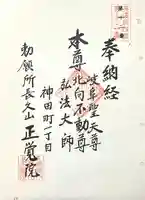 奉納経
岐阜聖天尊
本尊北向不動尊
弘法大師
神田町一丁目
勅願所長久山正覚院